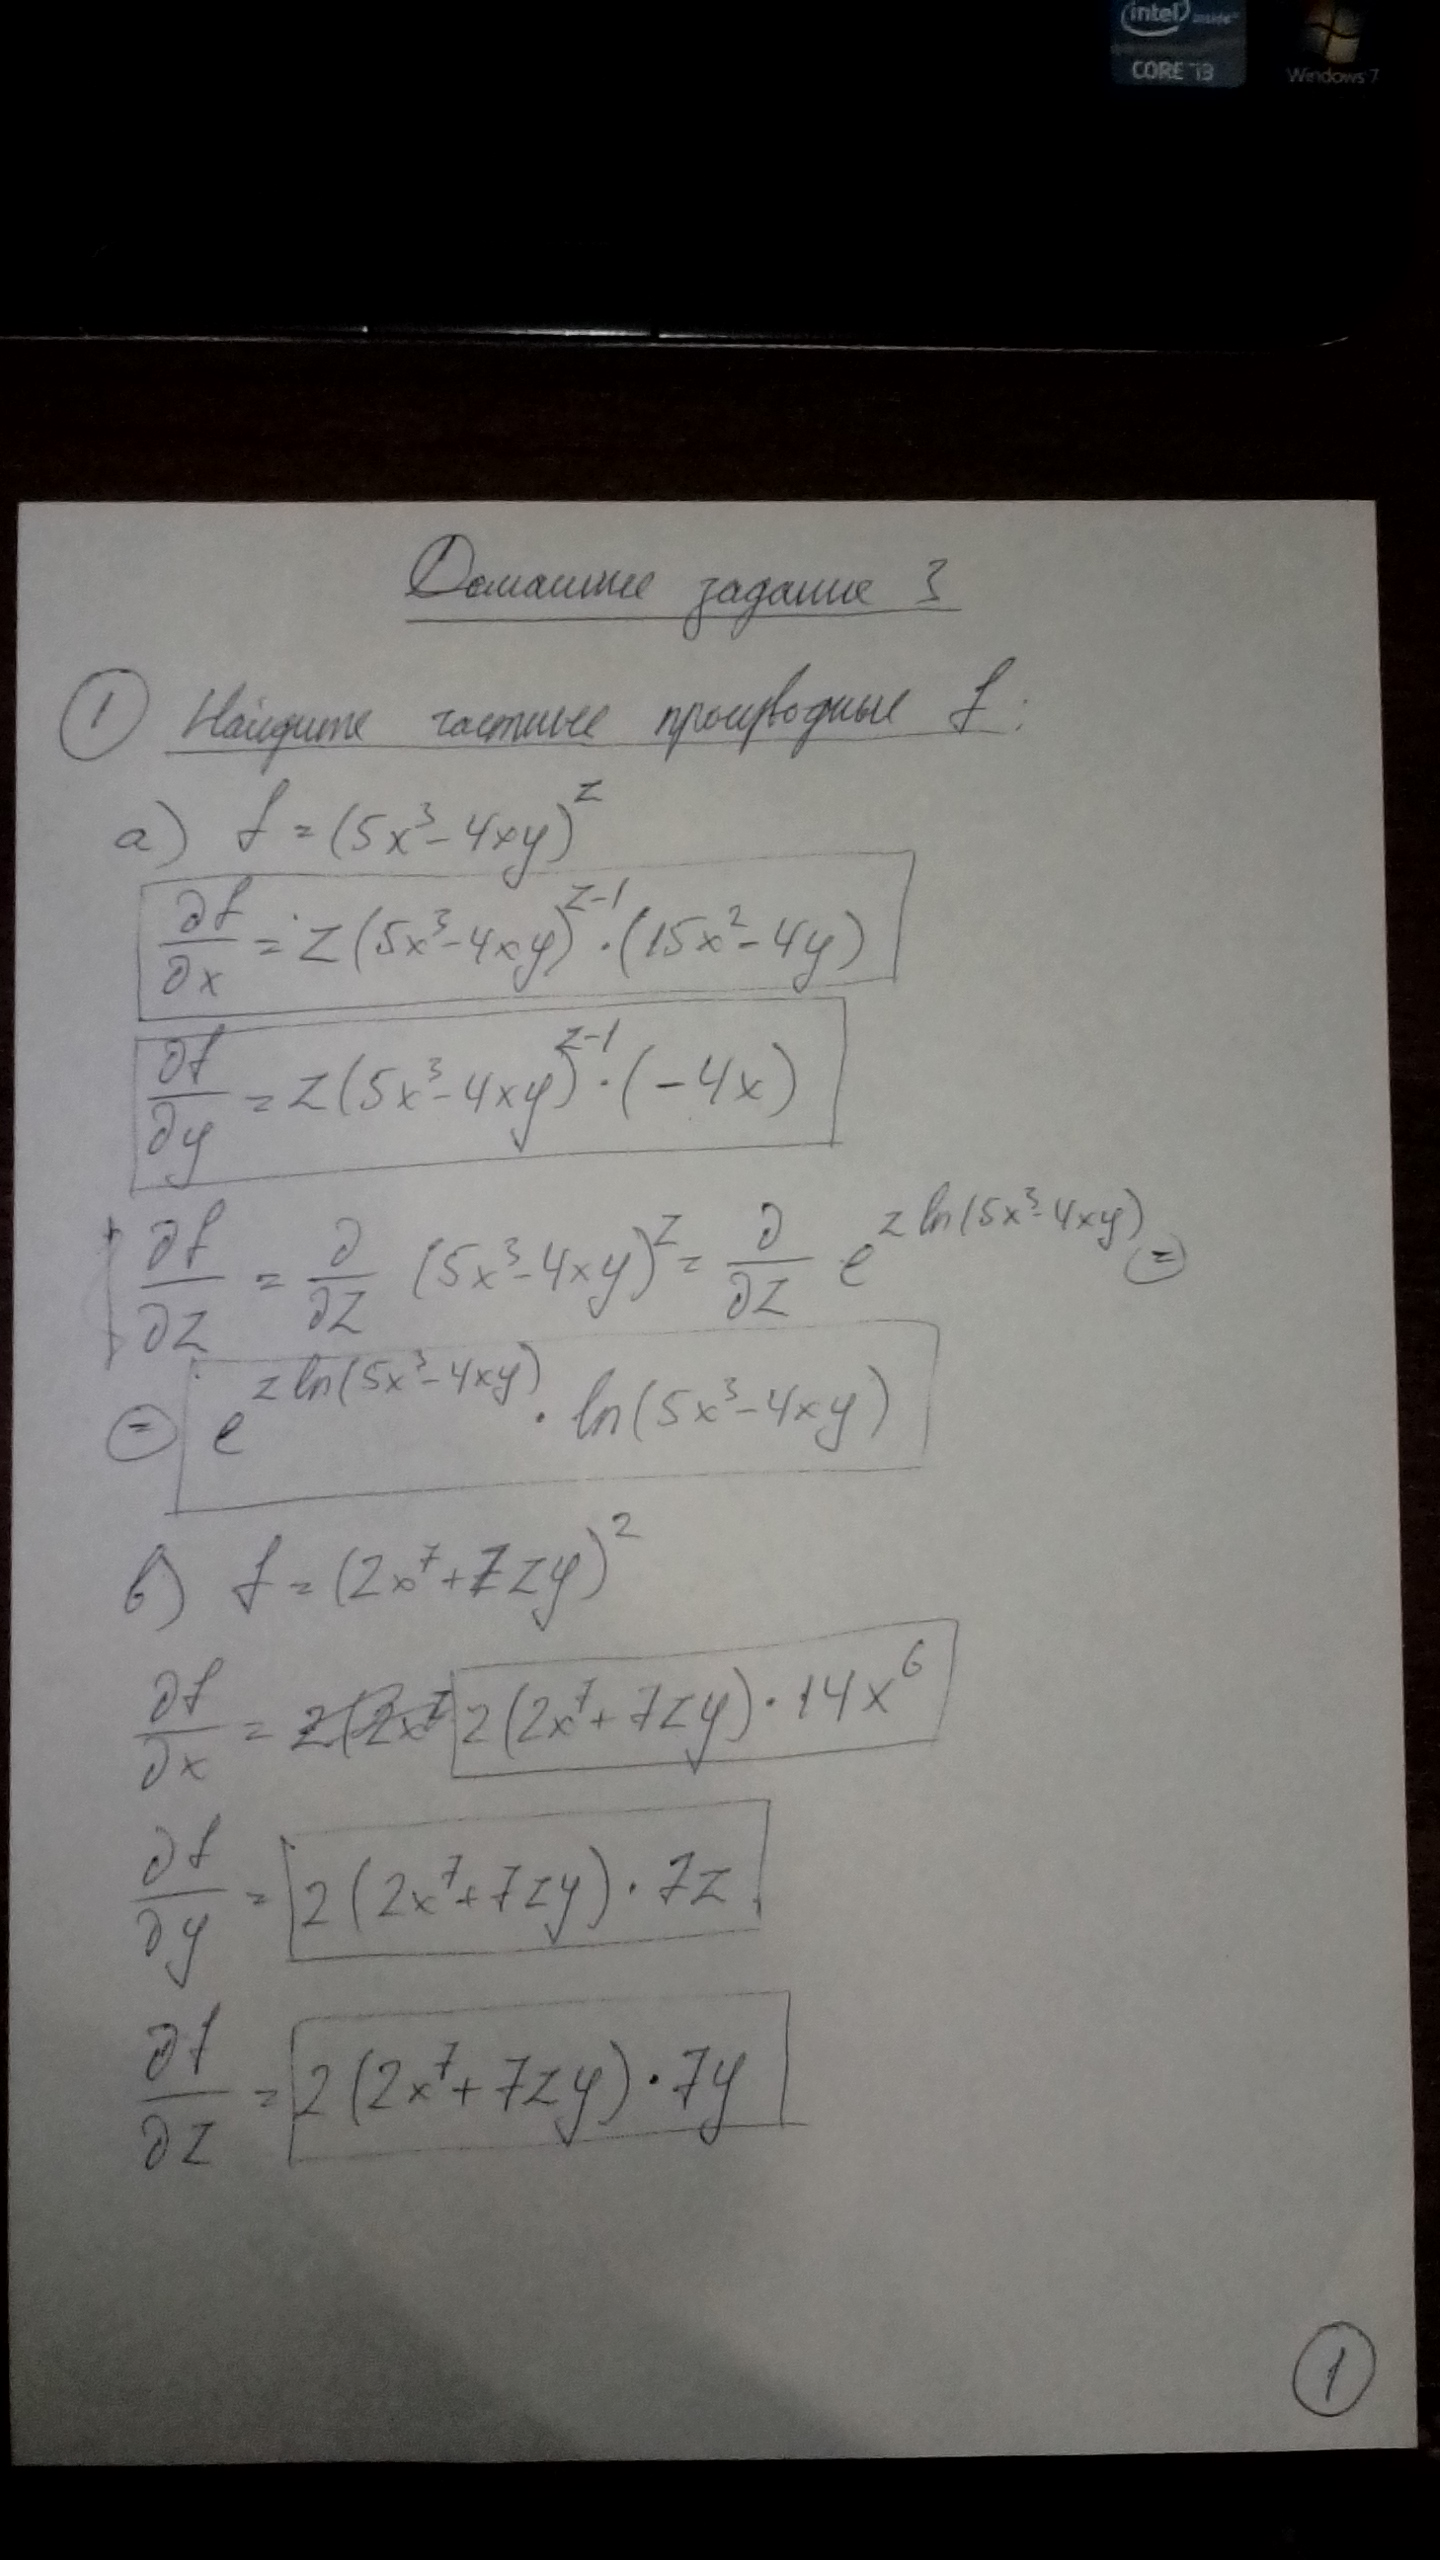 intel inside™
CORE i3
Windows 7
Домашнее задание 3
① Найдите частные производные f:
а) f = (5x³-4xy)^z
∂f/∂x = z(5x³-4xy)^(z-1)·(15x²-4y)
∂f/∂y = z(5x³-4xy)^(z-1)·(-4x)
∂f/∂z = ∂/∂z (5x³-4xy)^z = ∂/∂z e^(z ln(5x³-4xy)) ⊜
⊜ e^(z ln(5x³-4xy))·ln(5x³-4xy)
в) f = (2x⁷+7zy)²
∂f/∂x = 2(2x⁷+7zy)·14x⁶
∂f/∂y = 2(2x⁷+7zy)·7z
∂f/∂z = 2(2x⁷+7zy)·7y
①